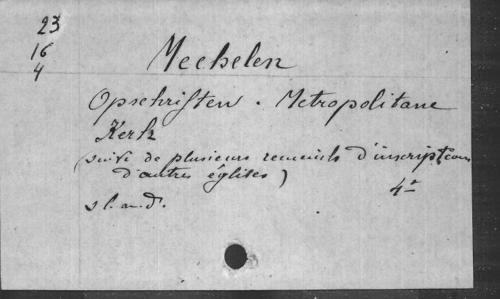 23
16
4
Mechelen
Opschriften. Metropolitane
Kerk
(suivi de plusieurs recueils d'inscriptions
d'autres églises)
4º
s l. a. d.